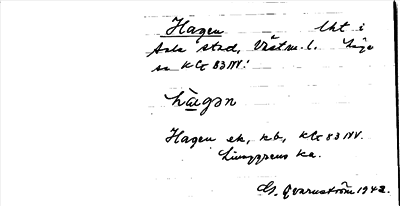 Hagen lht i
Sala stad, Västm. l. Läge
se Kbl 83 NV.
hagən
Hagen ek, kb, Kbl 83 NV.
Ljunggrens ka.
G. Qvarnström 1942.